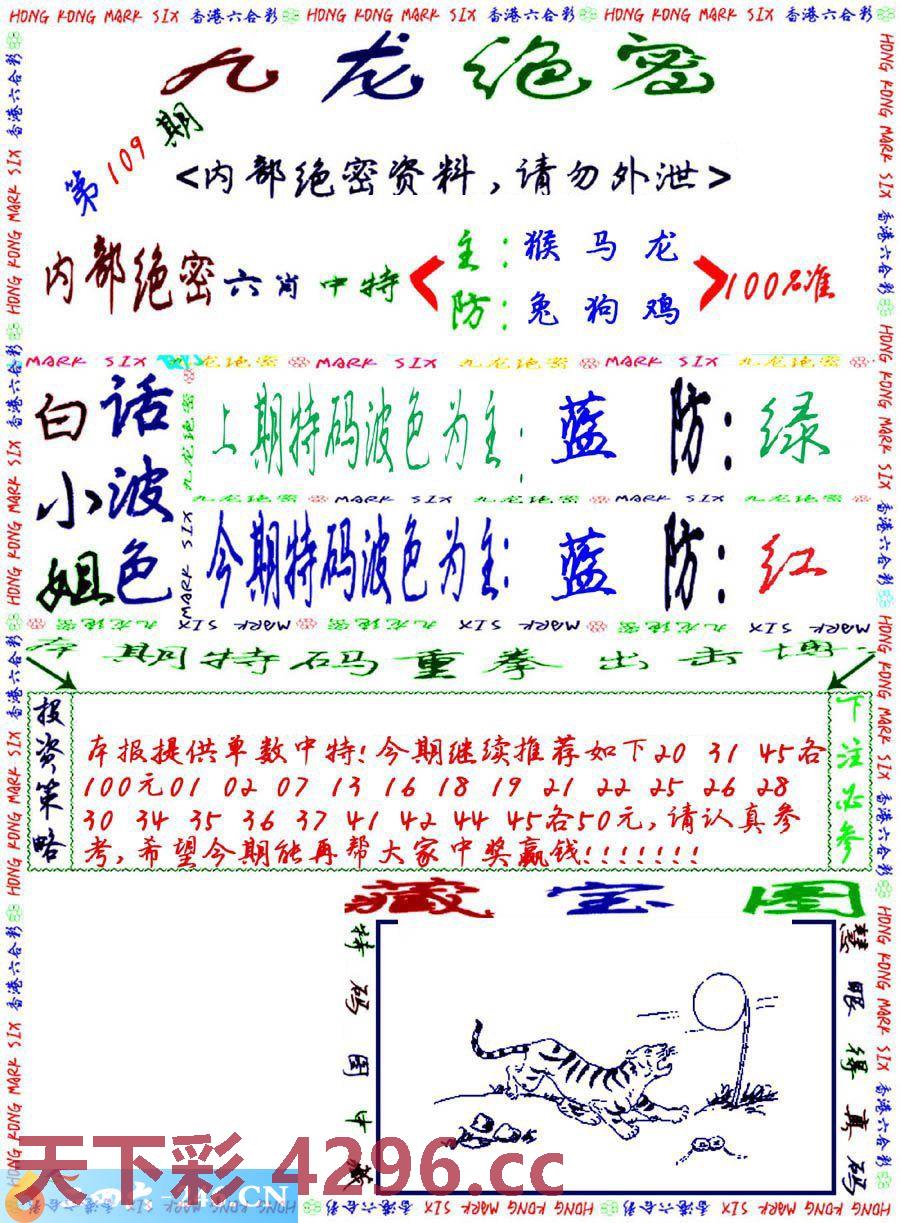 HONG KONG MARK SIX 香港六合彩 HONG KONG MARK SIX 香港六合彩 HONG KONG MARK SIX 香港六合彩
九龙绝密
第109期
<内部绝密资料,请勿外泄>
内部绝密六肖中特
主:猴 马 龙
防:兔 狗 鸡
100%准
MARK SIX 九龙绝密 MARK SIX 九龙绝密 MARK SIX 九龙绝密
白话小波姐色
上期特码波色为主: 蓝 防: 绿
九龙绝密 MARK SIX 九龙绝密 MARK SIX 九龙绝密
今期特码波色为主: 蓝 防: 红
MARK SIX 九龙绝密 MARK SIX 九龙绝密 MARK SIX 九龙绝密
本期特码重拳出击博
投资策略
本报提供单数中特!今期继续推荐如下20 31 45各
100元01 02 07 13 16 18 19 21 22 25 26 28
30 34 35 36 37 41 42 44 45各50元,请认真参
考,希望今期能再帮大家中奖赢钱!!!!!!!
下注必参
藏宝图
特码图中
慧眼得真码
天下彩 4296.cc
.CN